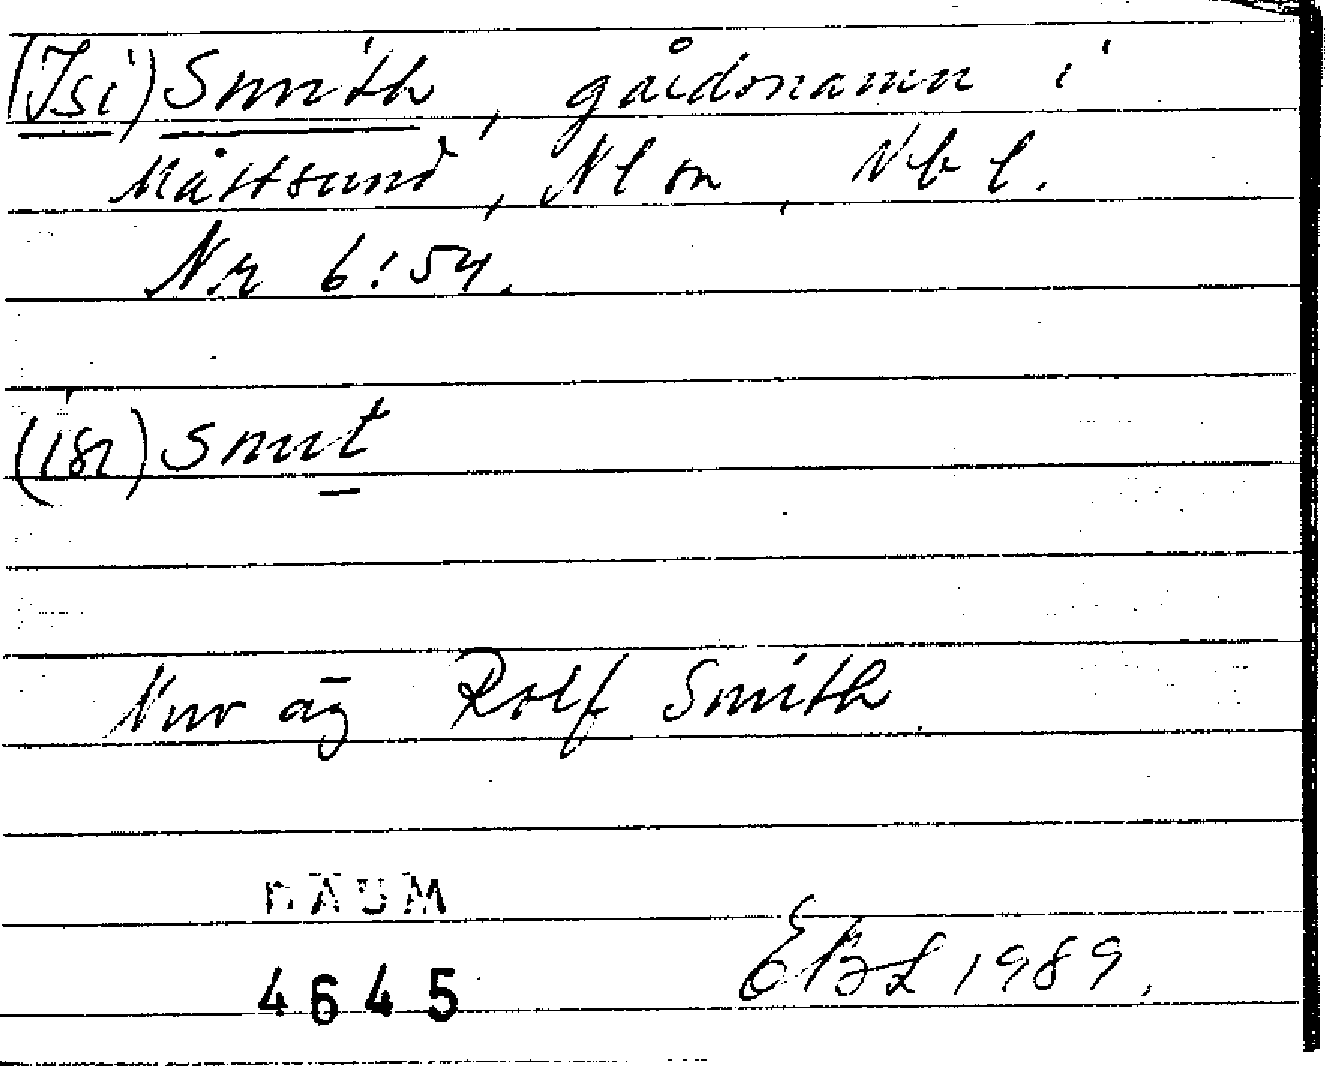 (Isi) Smith, gårdsnamn i
Måttsund, Nl sn, Nb l.
Nr 6:54.
(isi) smit
Nuv äg Rolf Smith.
DAUM
4645
EBL 1989.